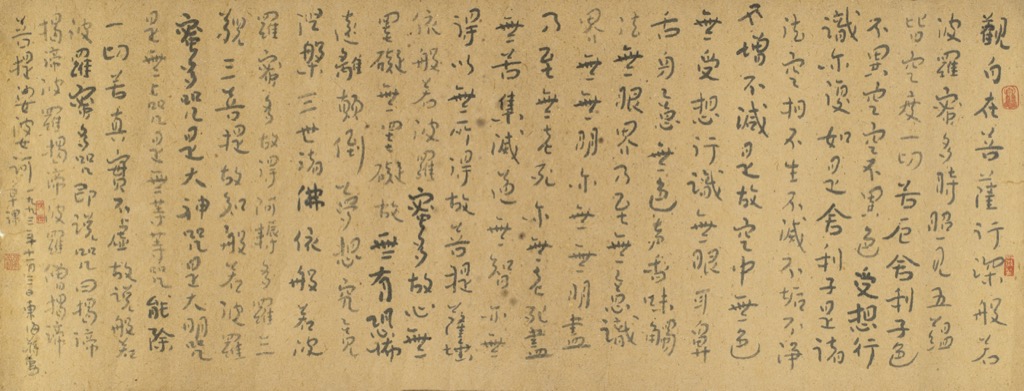 觀自在菩薩行深般若
波羅蜜多時照見五蘊
皆空度一切苦厄舍利子色
不異空空不異色受想行
識亦復如是舍利子是諸
法空相不生不滅不垢不淨
不增不減是故空中無色
無受想行識無眼耳鼻
舌身意無色香味觸
法無眼界乃至無意識
界無無明亦無無明盡
乃至無老死亦無老死盡
無苦集滅道無智亦無
得以無所得故菩提薩埵
依般若波羅蜜多故心無
罣礙無罣礙故無有恐怖
遠離顛倒夢想究竟
涅槃三世諸佛依般若波
羅蜜多故得阿耨多羅三
藐三菩提故知般若波羅
蜜多咒是大神咒是大明咒
是無上咒是無等等咒能除
一切苦真實不虛故說般若
波羅蜜多咒即說咒曰揭諦
揭諦波羅揭諦波羅僧揭諦
菩提娑婆訶
一九九三年十一月